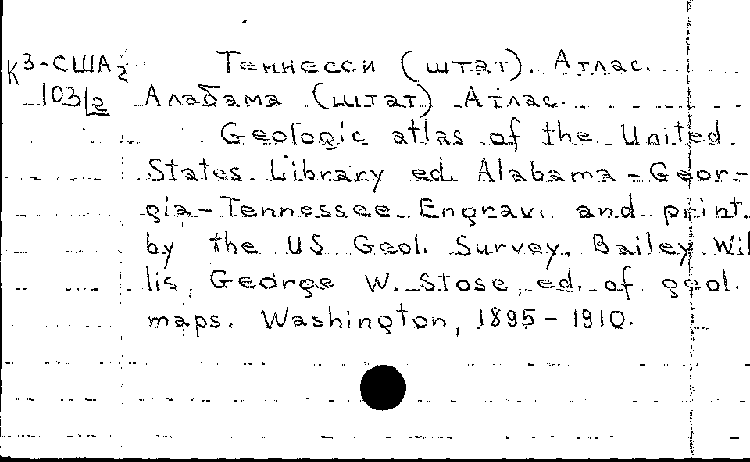 К3-США2 Теннесси (штат). Атлас.
103/2 Алабама (штат) Атлас.
Geologic atlas of the United
States. Library ed. Alabama-Geor-
gia-Tennessee. Engrav. and print.
by the US Geol. Survey. Bailey Wil
lis, George W. Stose, ed. of geol.
maps. Washington, 1895-1910.